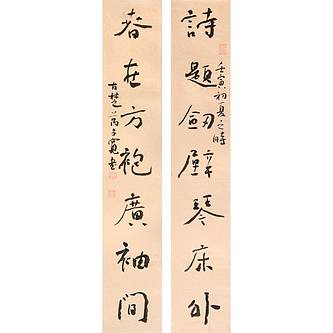 詩題劍壁琴床外
壬寅初夏之時
春在方袍廣袖間
古楚 子寬書